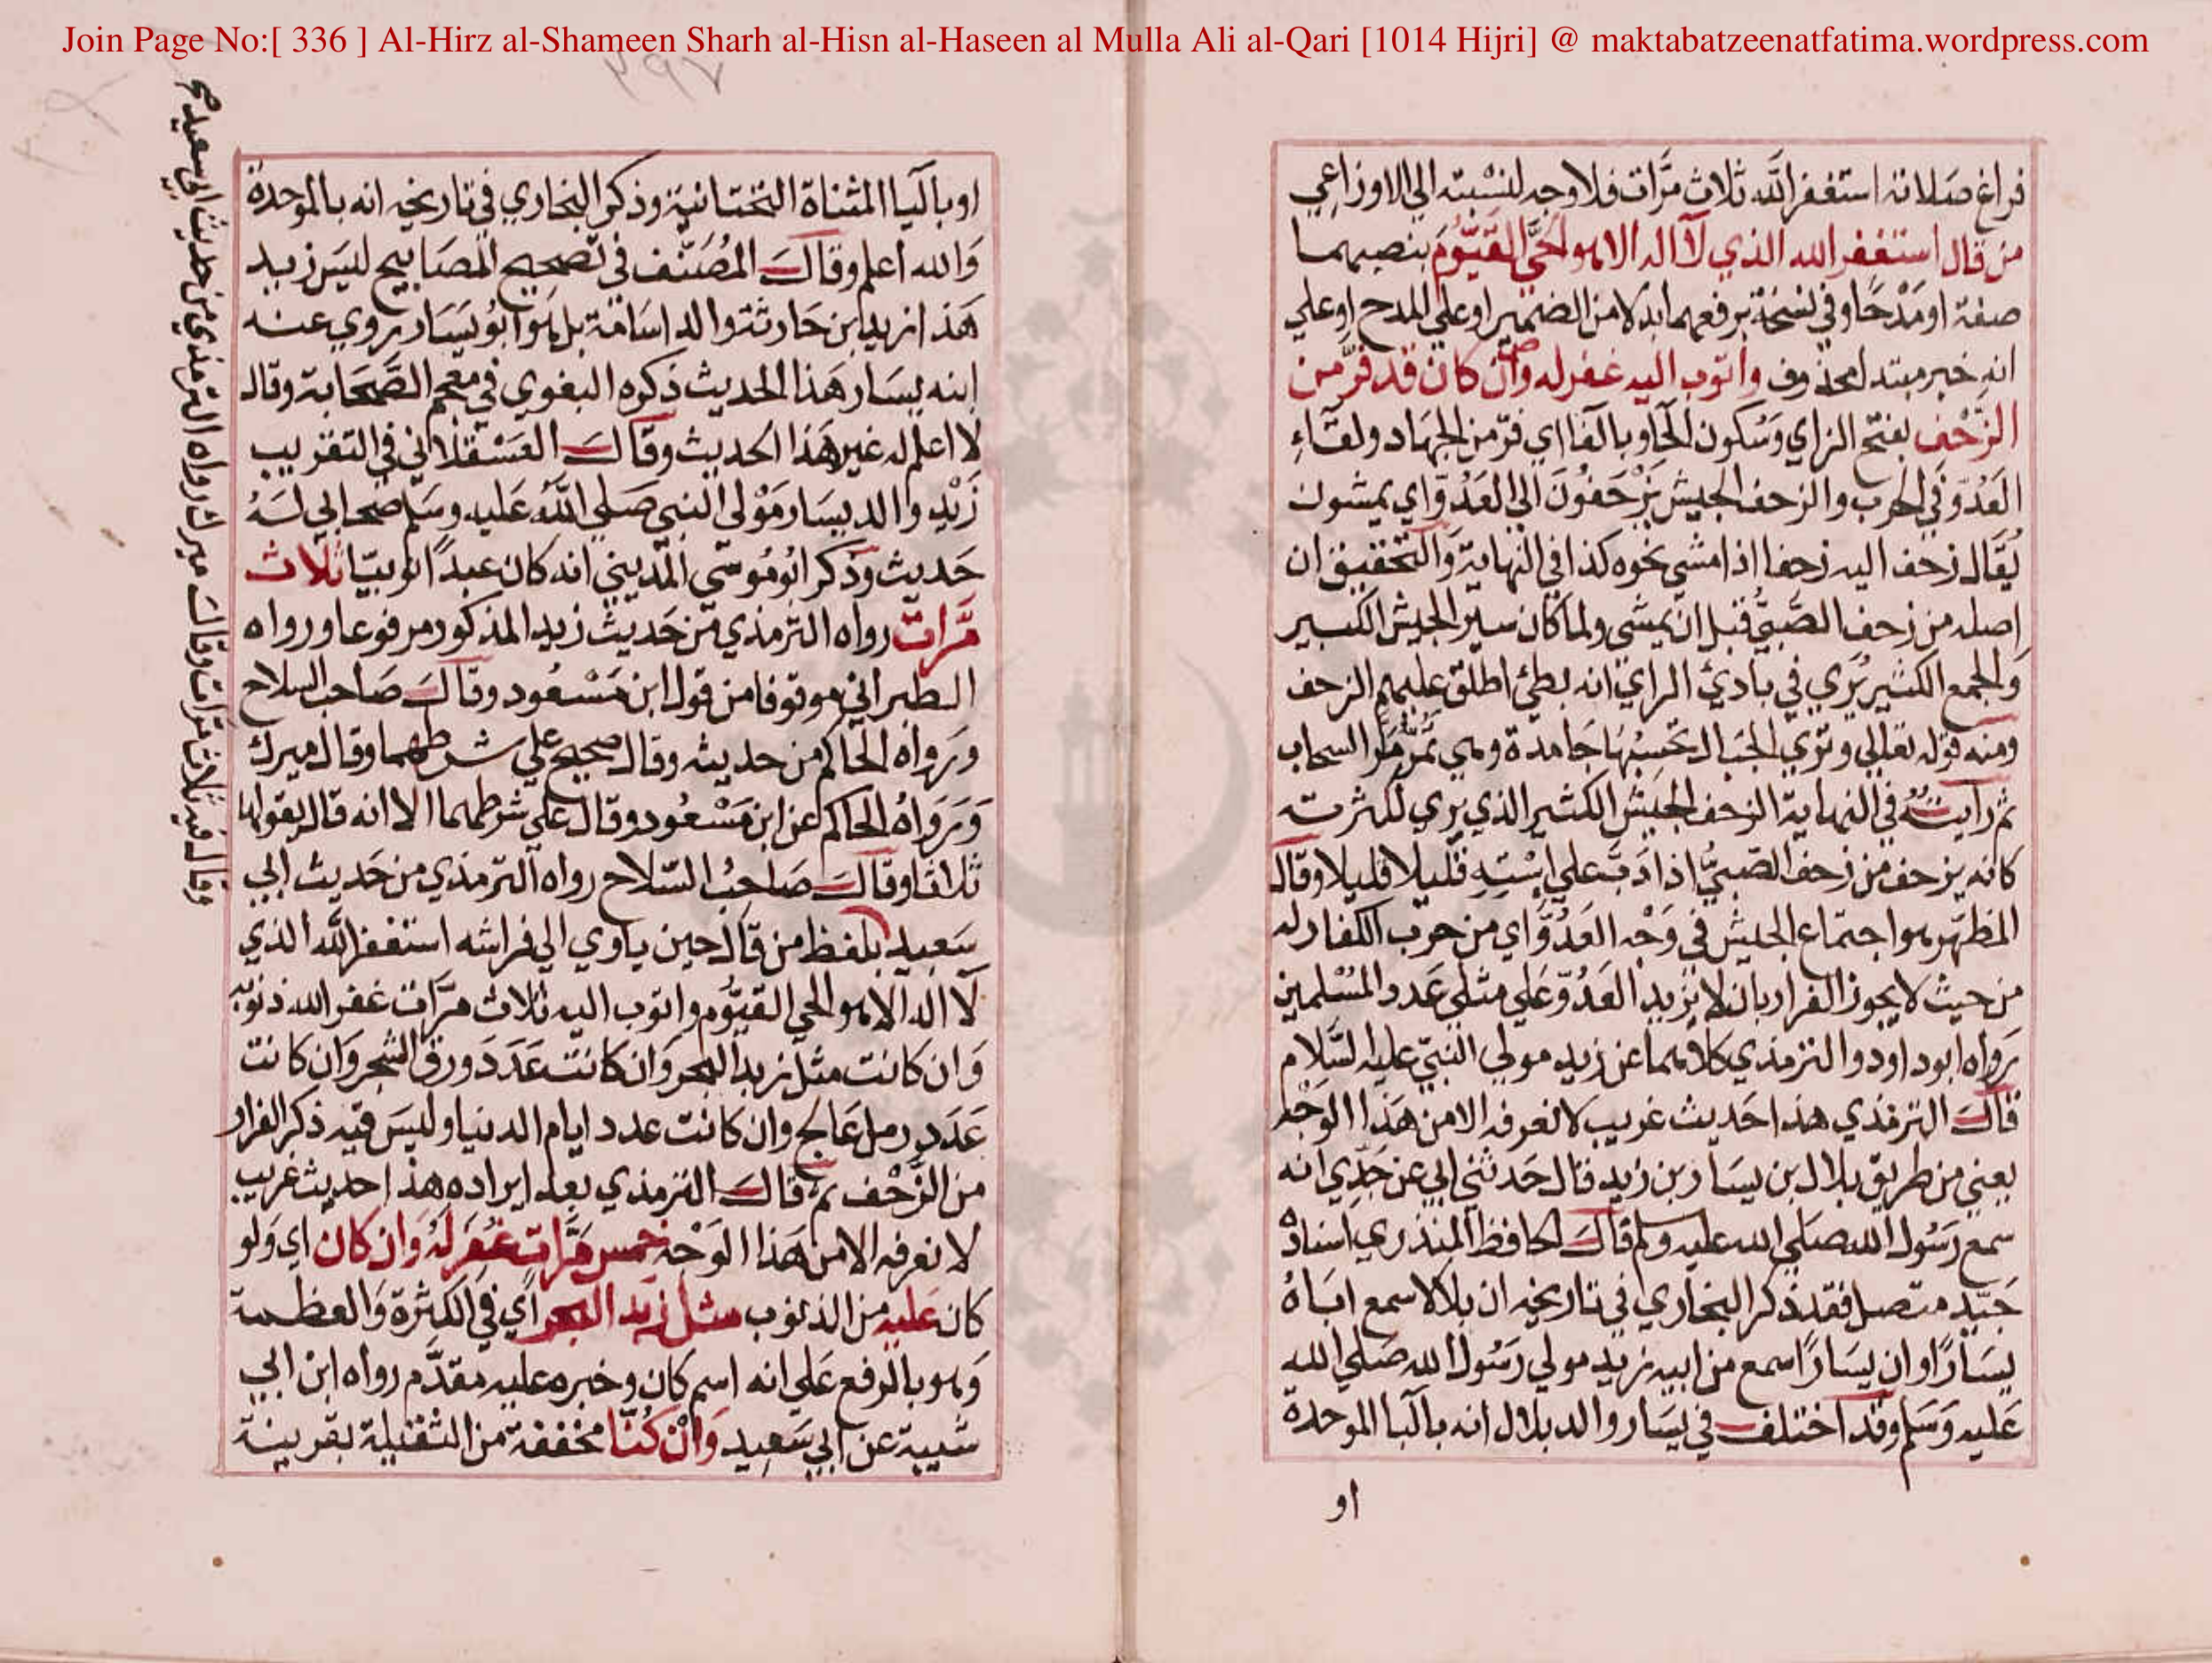 Join Page No:[ 336 ] Al-Hirz al-Shameen Sharh al-Hisn al-Haseen al Mulla Ali al-Qari [1014 Hijri] @ maktabatzeenatfatima.wordpress.com
٢٩٧
فراغ صلاته استغفر الله ثلاث مرّات فلا وجه لنسبته الي الاوزاعي
من قال استغفر الله الذي لا اله الا هو الحيَّ القيُّومَ بنصبهما
صفة او مَدْحًا وفي نسخة برفعهما بدلا من الضمير او علي المدح او علي
انه خبر مبتدا محذوف واتوب اليه غفر له وان كان قد فرّ من
الزّحْف بفتح الزاي وسُكون الحآء وبالفآء اي فرّ من الجهاد ولقآءِ
العَدُوّ في الحرب والزحف الجيش يَزْحَفُونَ الي العَدُوّ اي يمشون
يُقَال زحف اليه زحفا اذا مشي نحوه كذا في النهاية وَالتحقيق ان
اصله من زحف الصَّبيُّ قبل ان يمشي ولما كان سير الجيش الكبير
وَالجمع الكثير يُري في بادئ الراي انه بطئ اطلق عليهم الزحف
ومنه قوله تعالي وتري الجبال تحسبُهَا جَامدة وهي تمُرّ مَرّ السحاب
ثم رايتُهُ في النهاية الزحف الجيش الكثير الذي يري لكثرته
كانه يزحف من زحف الصّبيُّ اذا دَبّ علي اسْتِهِ قليلا قليلا وقال
المظهّر هو اجتماع الجيش في وَجْه العَدُوّ اي من حرب الكفار له
من حيث لا يجوز الفرار بان لا يزيد العَدُوّ عَلي مثلي عَدد المُسْلمين
رَواه ابو داود والترمذي كلاهما عن زيد مولي النبيّ عليه السَّلام
قال الترمذي هذا حَديث غريب لا نعرفه الا من هَذا الوَجْه
يعني من طريق بلال بن يسَار بن زيد قال حَدثني ابي عن جَدّي انه
سمع رَسُول الله صلي الله عليه وسلم قال الحافظ المنذري اسنادُهُ
جَيّد متصل فقد ذكر البخاري في تاريخه ان بلالا سمع ابَاهُ
يسَارًا وان يسَارًا سمع من ابيه زيد مولي رَسُول الله صَلي الله
عَليه وَسَلم وقد اختلف في يسَار والد بلال انه بالبا الموحدة
او
او باليا المثناة التحتانية وذكر البخاري في تاريخه انه بالموحدة
وَالله اعلم وقال المُصَنّف في تصحيح المصَابيح ليسَ زيد
هَذا زيد ابن حَارثة والد اسَامة بل هو ابُو يَسَار روي عنه
ابنه يسَار هَذا الحديث ذكره البغوي في معجم الصَّحَابة وقال
لا اعلم له غير هَذا الحديث وقال العَسْقلاني في التقريب
زَيْد والد يسَار مَوْلي النبي صَلي اللَّهُ عَليه وسَلم صحابي لَهُ
حَديث وذكر ابُو مُوسَي المديني انه كان عبدًا نوبيّا ثلاث
مَّرات رواه الترمذي من حَديث زيد المذكور مرفوعا ورواه
الطبراني موقوفا من قول ابن مَسْعُود وقال صَاحب السلاح
وَرواه الحاكم من حديثه وقال صحيح علي شرطهما وقال ميرك
وَرَوَاهُ الحاكم عن ابن مَسْعُود وقال علي شرطهما الا انه قال يقولها
ثلاثا وقال صَاحبُ السّلاح رواه الترمذي من حَديث ابي
سَعيد بلفظ من قال حين ياوي الي فراشه استغفر الله الذي
لا اله الا هو الحي القيُّوم واتوب اليه ثلاث مرّات غفر الله ذنوبه
وَان كانت مثل زبد البحر وَان كانت عَدَدَ ورق الشجر وَان كانت
عَدَد رمل عَالج وان كانت عدد ايام الدنيا وليسَ فيه ذكر الفرار
من الزّحْف ثم قال الترمذي بعد ايراده هذا حديث غريب
لا نعرفه الا من هَذا الوَجْه خمس مَّرات غُفِرَ لَهُ وَان كان اي وَلو
كان عَليه من الذنوب مثل زبد البحر اي في الكثرة وَالعظمة
وَهو بالرفع عَلي انه اسم كان وخبره عليه مقدَّم رواه ابن ابي
شيبة عن ابي سَعِيد وَانْ كُنّا مخففة من الثقيلة بقرينة
وقال فيه ثلاث مرّات وقال ميرك رواه الترمذي من حديث ابي سعيد صح